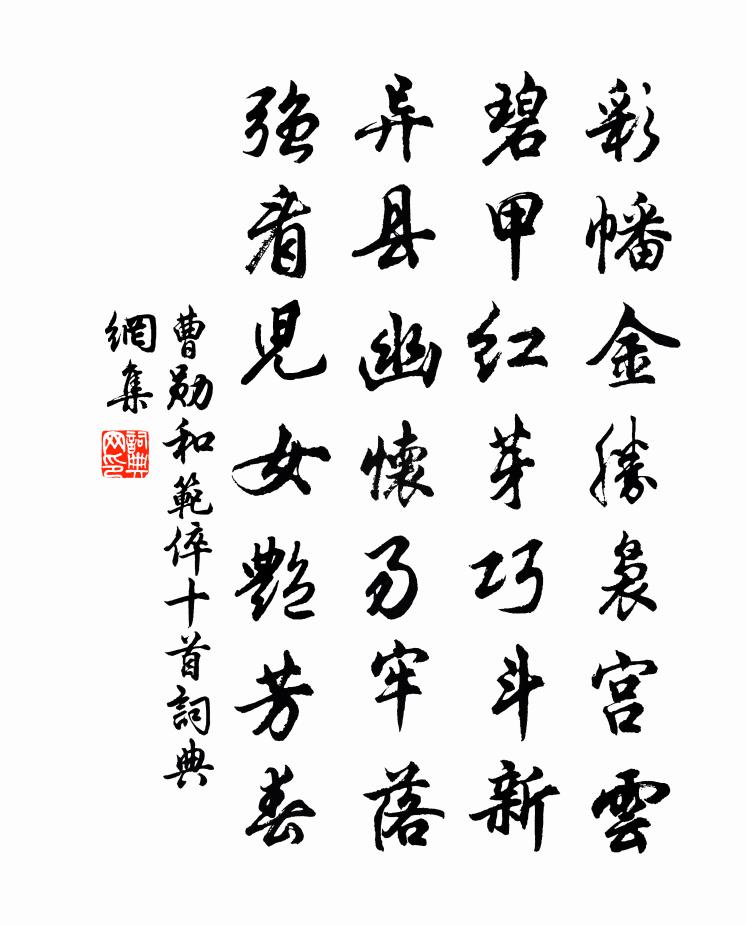 彩幡金勝裊宮雲
碧甲紅芽巧斗新
异县幽懷易牢落
強看兒女艷芳春
曹勛和範倅十首詞典
網集
詞典
网印